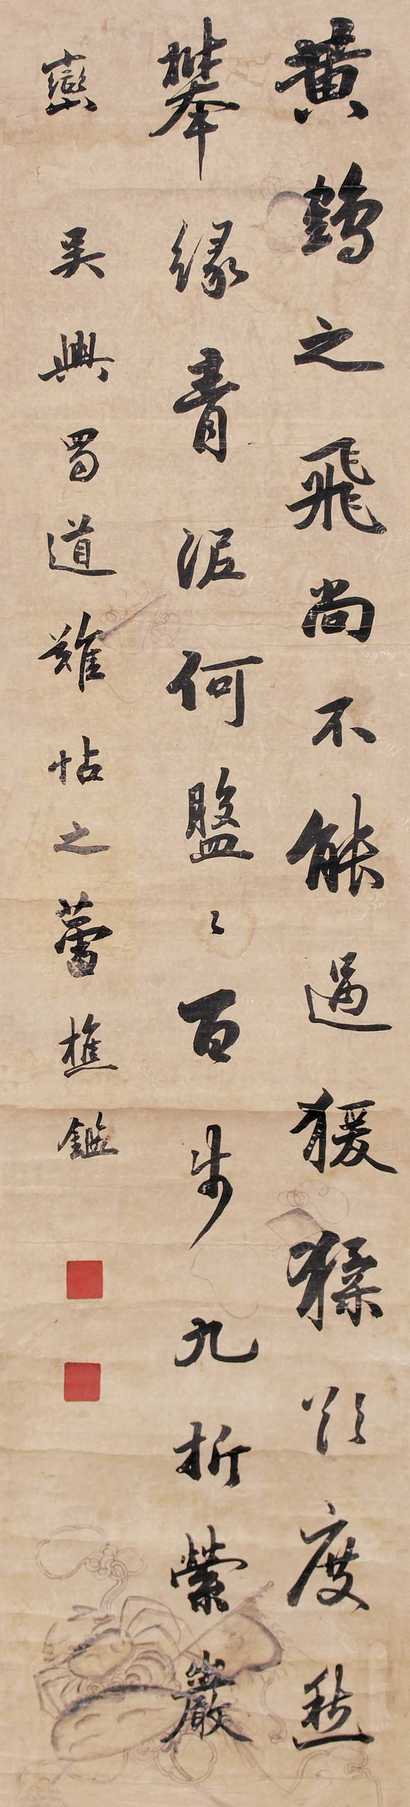 黃鶴之飛尚不能過猨猱欲度愁
攀緣青泥何盤〻百步九折縈巖
巒　吳興蜀道難帖之蕾樵鑑